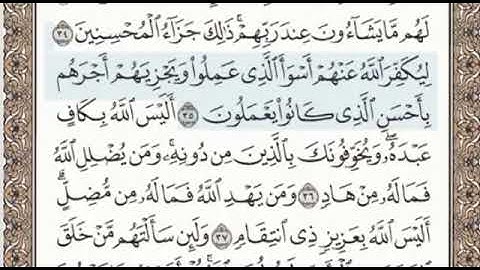 لَهُم مَّا يَشَآءُونَ عِندَ رَبِّهِمْ ۚ ذَٰلِكَ جَزَآءُ ٱلْمُحْسِنِينَ ٣٤
لِيُكَفِّرَ ٱللَّهُ عَنْهُمْ أَسْوَأَ ٱلَّذِى عَمِلُوا۟ وَيَجْزِيَهُمْ أَجْرَهُم
بِأَحْسَنِ ٱلَّذِى كَانُوا۟ يَعْمَلُونَ ٣٥ أَلَيْسَ ٱللَّهُ بِكَافٍ
عَبْدَهُۥ ۖ وَيُخَوِّفُونَكَ بِٱلَّذِينَ مِن دُونِهِۦ ۚ وَمَن يُضْلِلِ ٱللَّهُ
فَمَا لَهُۥ مِنْ هَادٍ ٣٦ وَمَن يَهْدِ ٱللَّهُ فَمَا لَهُۥ مِن مُّضِلٍّ ۗ
أَلَيْسَ ٱللَّهُ بِعَزِيزٍ ذِى ٱنتِقَامٍ ٣٧ وَلَئِن سَأَلْتَهُم مَّنْ خَلَقَ